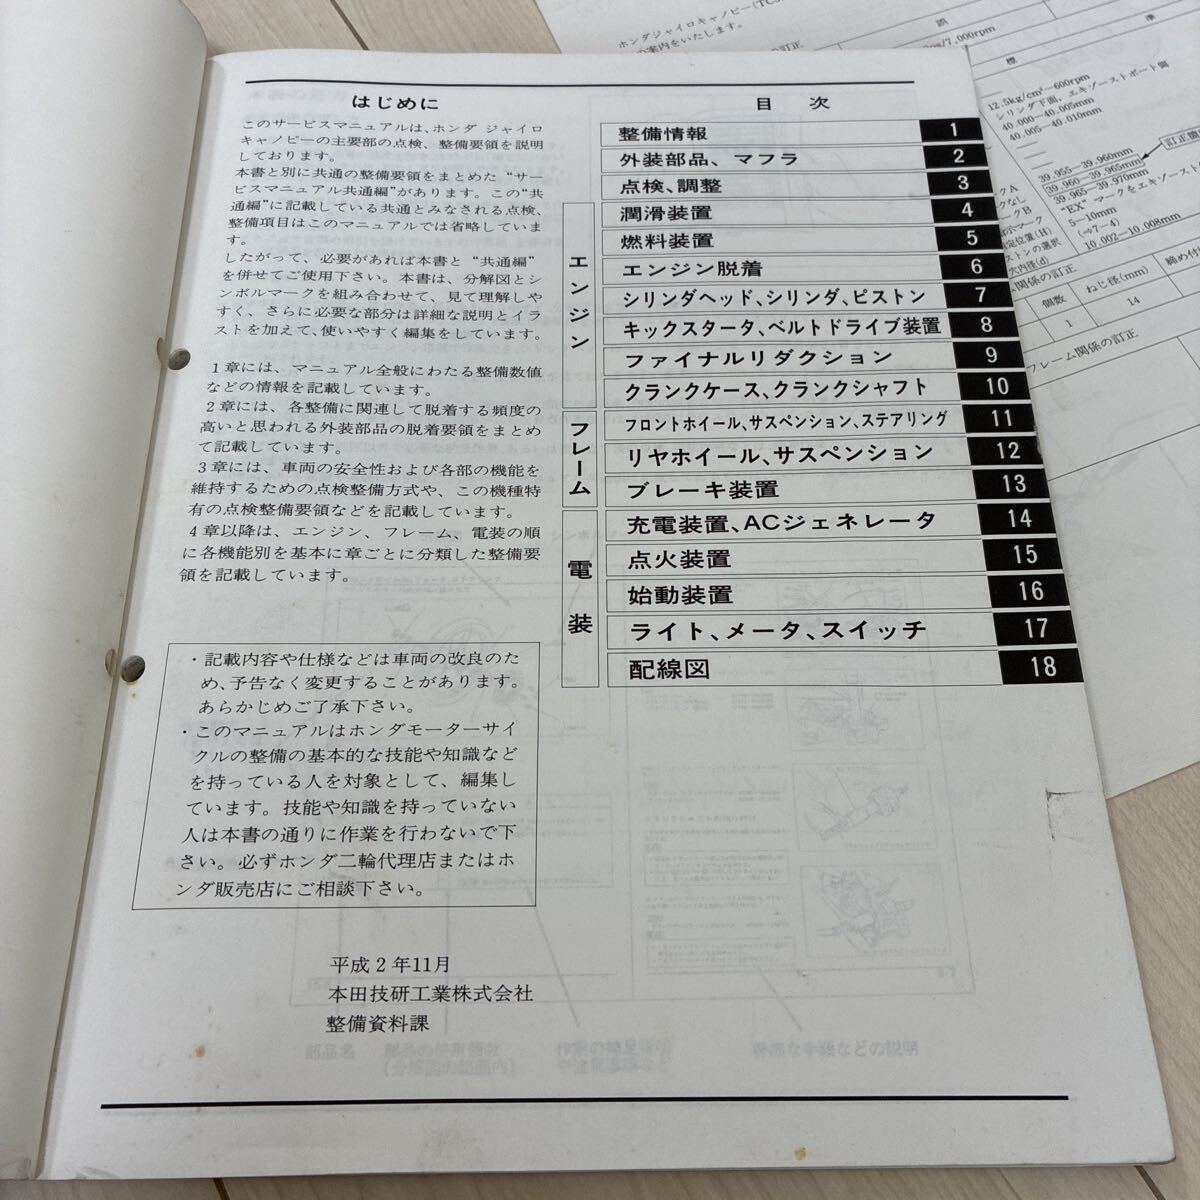 はじめに
このサービスマニュアルは、ホンダ ジャイロ
キャノピーの主要部の点検、整備要領を説明
しております。
本書と別に共通の整備要領をまとめた “サー
ビスマニュアル共通編”があります。この“共
通編”に記載している共通とみなされる点検、
整備項目はこのマニュアルでは省略していま
す。
したがって、必要があれば本書と “共通編”
を併せてご使用下さい。本書は、分解図とシ
ンボルマークを組み合わせて、見て理解しや
すく、さらに必要な部分は詳細な説明とイラ
ストを加えて、使いやすく編集をしています。
1章には、マニュアル全般にわたる整備数値
などの情報を記載しています。
2章には、各整備に関連して脱着する頻度の
高いと思われる外装部品の脱着要領をまとめ
て記載しています。
3章には、車両の安全性および各部の機能を
維持するための点検整備方式や、この機種特
有の点検整備要領などを記載しています。
4章以降は、エンジン、フレーム、電装の順
に各機能別を基本に章ごとに分類した整備要
領を記載しています。
・記載内容や仕様などは車両の改良のた
め、予告なく変更することがあります。
あらかじめご了承下さい。
・このマニュアルはホンダモーターサイ
クルの整備の基本的な技能や知識など
を持っている人を対象として、編集し
ています。技能や知識を持っていない
人は本書の通りに作業を行わないで下
さい。必ずホンダ二輪代理店またはホ
ンダ販売店にご相談下さい。
平成2年11月
本田技研工業株式会社
整備資料課
目 次
整備情報 1
外装部品、マフラ 2
点検、調整 3
エンジン
潤滑装置 4
燃料装置 5
エンジン脱着 6
シリンダヘッド、シリンダ、ピストン 7
キックスタータ、ベルトドライブ装置 8
ファイナルリダクション 9
クランクケース、クランクシャフト 10
フレーム
フロントホイール、サスペンション、ステアリング 11
リヤホイール、サスペンション 12
ブレーキ装置 13
電装
充電装置、ACジェネレータ 14
点火装置 15
始動装置 16
ライト、メータ、スイッチ 17
配線図 18
ホンダジャイロキャノピー(TC
の案内をいたします。
の訂正
誤
/7,000rpm
標
準
12.5kg/cm²−600rpm
シリンダ下面，エキゾーストポート側
40.000−40.005mm
40.005−40.010mm
訂正箇
39.955−39.960mm
39.960−39.965mm
39.965−39.970mm
“EX” マークをエキゾースト
5−10mm
(⇒7−4)
10.002−10.008mm
クA
クなし
ークB
示マーク
定位置(H)
ストンの選択
穴内径(d)
関係の訂正
個数
ねじ径(mm)
締め付
1
14
フレーム関係の訂正